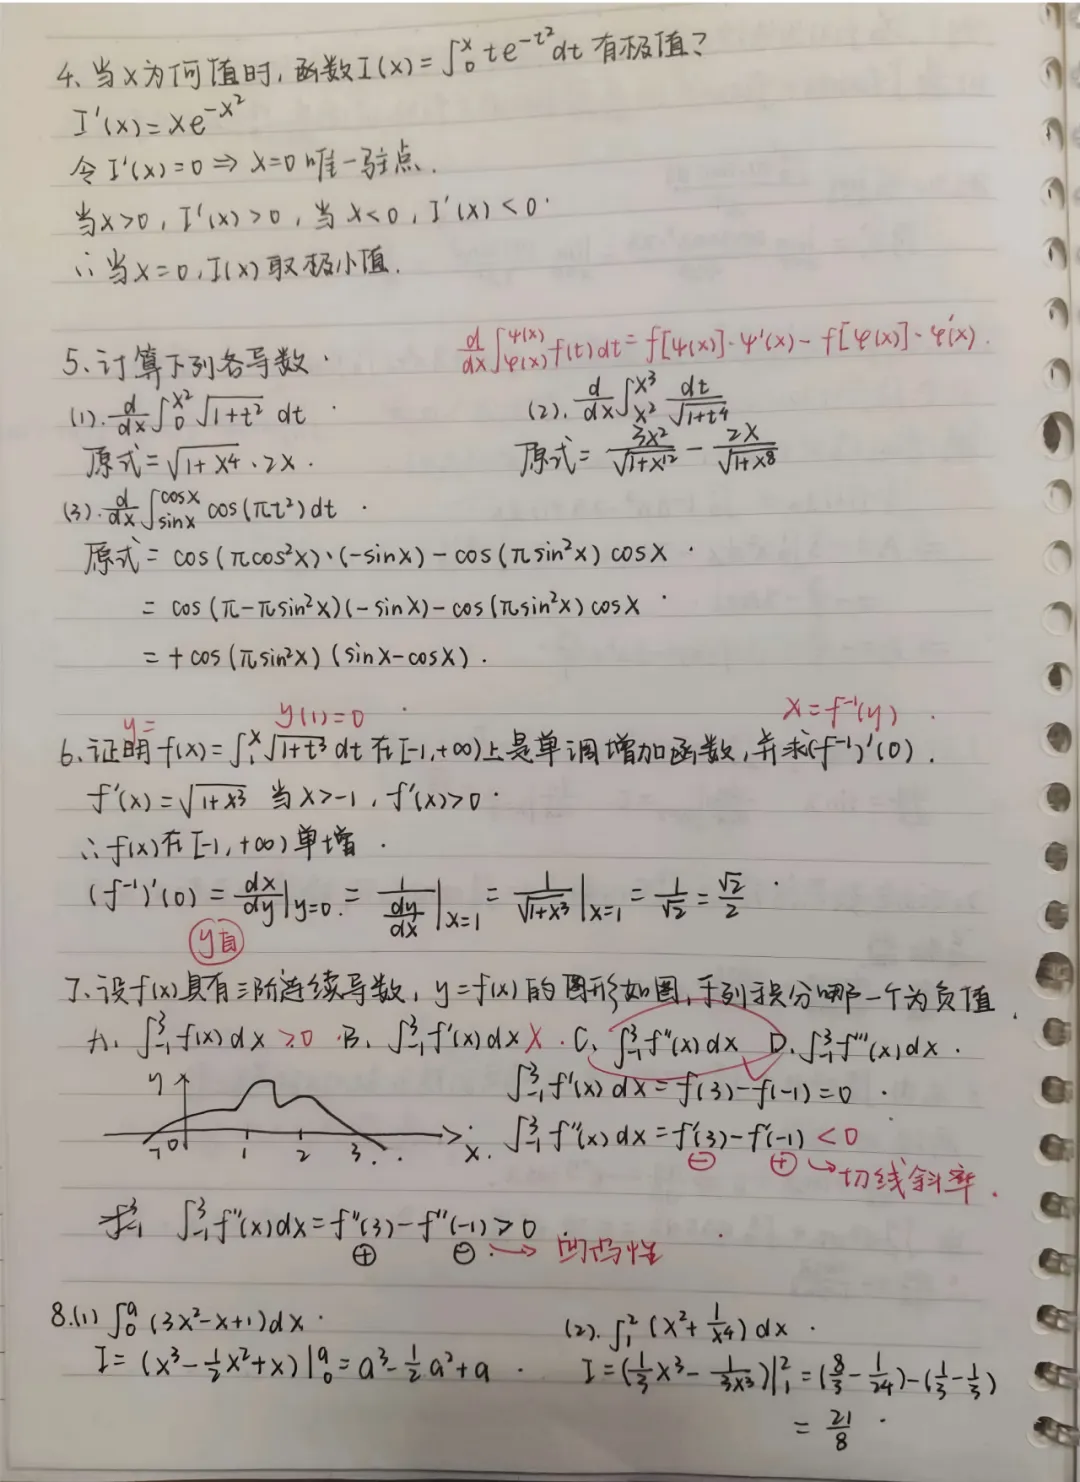 4、当x为何值时,函数I(x)=∫₀ˣ te^{-t²}dt 有极值?
I'(x)=xe^{-x²}
令I'(x)=0⇒x=0唯一驻点.
当x>0,I'(x)>0,当x<0,I'(x)<0.
∴当x=0,I(x)取极小值.
d/dx ∫_{φ(x)}^{ψ(x)} f(t)dt=f[ψ(x)]·ψ'(x)-f[φ(x)]·φ'(x).
5、计算下列各导数.
(1). d/dx ∫₀^{x²} √(1+t²) dt (2). d/dx ∫_{x²}^{x³} dt/√(1+t⁴)
原式=√(1+x⁴)·2x. 原式=3x²/√(1+x¹²) - 2x/√(1+x⁸)
(3). d/dx ∫_{sinx}^{cosx} cos(πt²)dt.
原式=cos(πcos²x)·(-sinx)-cos(πsin²x)cosx.
=cos(π-πsin²x)(-sinx)-cos(πsin²x)cosx.
=+cos(πsin²x)(sinx-cosx).
y= y(1)=0 x=f⁻¹(y)
6、证明f(x)=∫₁ˣ √(1+t³) dt在[-1,+∞)上是单调增加函数,并求(f⁻¹)'(0).
f'(x)=√(1+x³) 当x>-1,f'(x)>0.
∴f(x)在[-1,+∞)单增.
(f⁻¹)'(0)=dx/dy|y=0.=1/(dy/dx)|x=1=1/√(1+x³)|x=1=1/√2=√2/2
y值
7、设f(x)具有三阶连续导数,y=f(x)的图形如图,下列积分哪一个为负值.
A、∫₋₁³ f(x)dx >0 B、∫₋₁³ f'(x)dx X. C、∫₋₁³ f''(x)dx D、∫₋₁³ f'''(x)dx.
∫₋₁³ f'(x)dx=f(3)-f(-1)=0
y
-1 0 1 2 3 x.
∫₋₁³ f''(x)dx=f'(3)-f'(-1)<0
⊖ ⊕→切线斜率.
∫₋₁³ f''(x)dx=f''(3)-f''(-1)>0
⊕ ⊖→凹凸性
8.(1) ∫₀ᵃ (3x²-x+1)dx. (2). ∫₁² (x²+1/x⁴)dx.
I=(x³-½x²+x)|₀ᵃ=a³-½a²+a. I=(⅓x³-1/3x³)|₁²=(8/3-1/24)-(⅓-⅓)
=21/8.